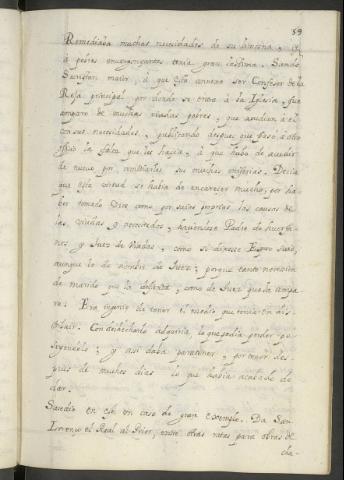 59
Remediaba muchas necesidades de su hacienda, y
a pobres envergonzantes tenia gran lastima. Siendo
Sacristan maior, à que està annexo ser Confesor de la
Rexa principal por donde se entra à la Iglesia, fue
amparo de muchas viudas pobres, que acudian à el
con sus necesidades, publicando despues que pasò à otro
officio la falta que les hacia, à que huvo de acudir
de nuevo por remediarles sus muchas miserias. Decia
que esta virtud se havia de encarecer mucho, por ha-
ber tomado Dios como por suias proprias las causas de
las viudas y necesitados, haciendose Padre de huerfa-
nos y Juez de Viudas, como si dixesse Esposo suio,
aunque lo de nombre de Juez; porque tanto necesitan
de marido que las defienda, como de Juez que las ampa-
re. Era ingenio de tener el modo que tenia en dis-
tribuir. Con de adquiria lo que podia
y assi daba para comer, y por tener des-
pues de muchos dias lo que havia acabado de
dar.
Sucediò en esto un caso de gran exemplo. Da San
Lorenzo el Real al Prior, entre otras rentas para obras de
cha-